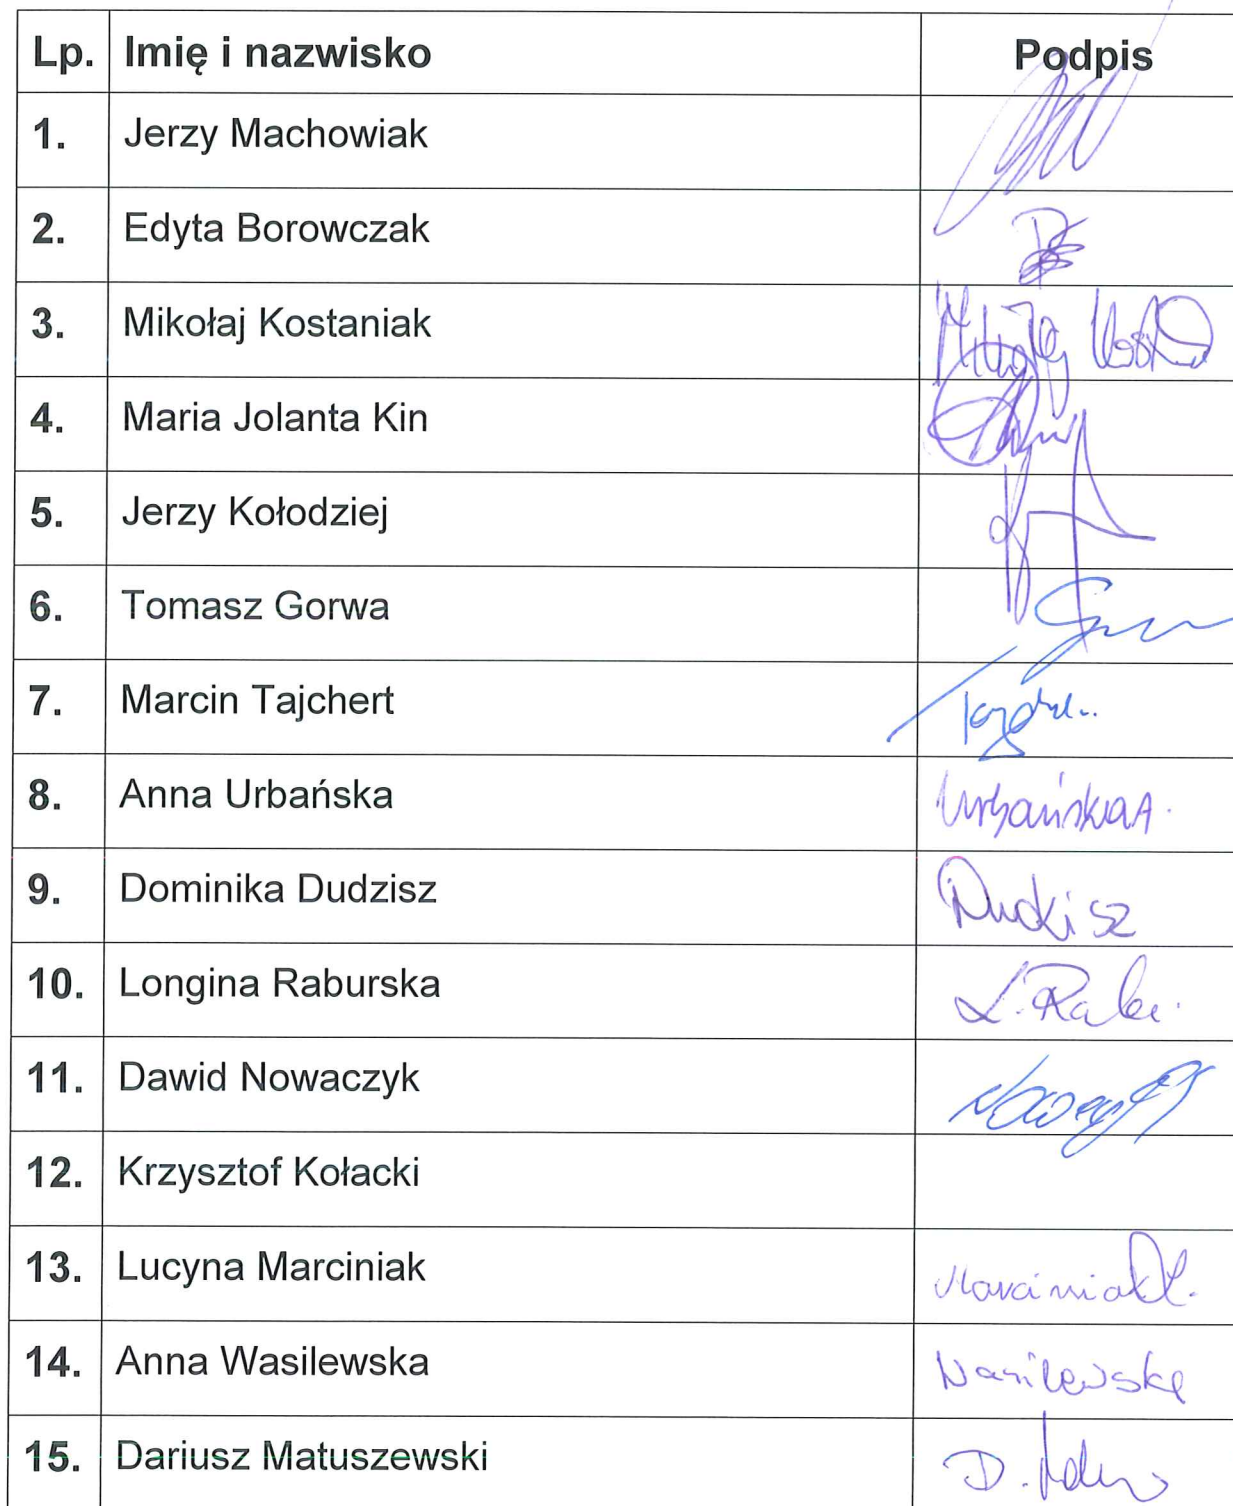 Lp. Imię i nazwisko Podpis
1. Jerzy Machowiak
2. Edyta Borowczak
3. Mikołaj Kostaniak Mikołaj
4. Maria Jolanta Kin
5. Jerzy Kołodziej
6. Tomasz Gorwa
7. Marcin Tajchert
8. Anna Urbańska Urbańska A.
9. Dominika Dudzisz Dudzisz
10. Longina Raburska L. Rabu.
11. Dawid Nowaczyk
12. Krzysztof Kołacki
13. Lucyna Marciniak Marciniak L.
14. Anna Wasilewska Wasilewska
15. Dariusz Matuszewski D.